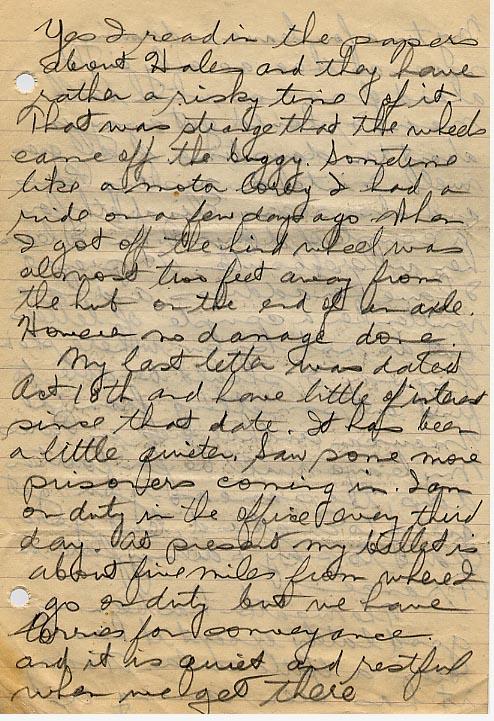 Yes I read in the papers
about Hales and they have
rather a risky time of it
That was strange that the wheels
came off the buggy. Sometime
like a motor lorry I had a
ride on a few days ago when
I got off the hind wheel was
almost two feet away from
the hub on the end of an axle.
However no damage done.
My last letter was dated
Oct 18th and have little of interest
since that date. It has been
a little quieter. Saw some more
prisoners coming in. I am
on duty in the office every third
day. At present my billet is
about five miles from where I
go on duty but we have
lorries for conveyance.
and it is quiet and restful
when we get there